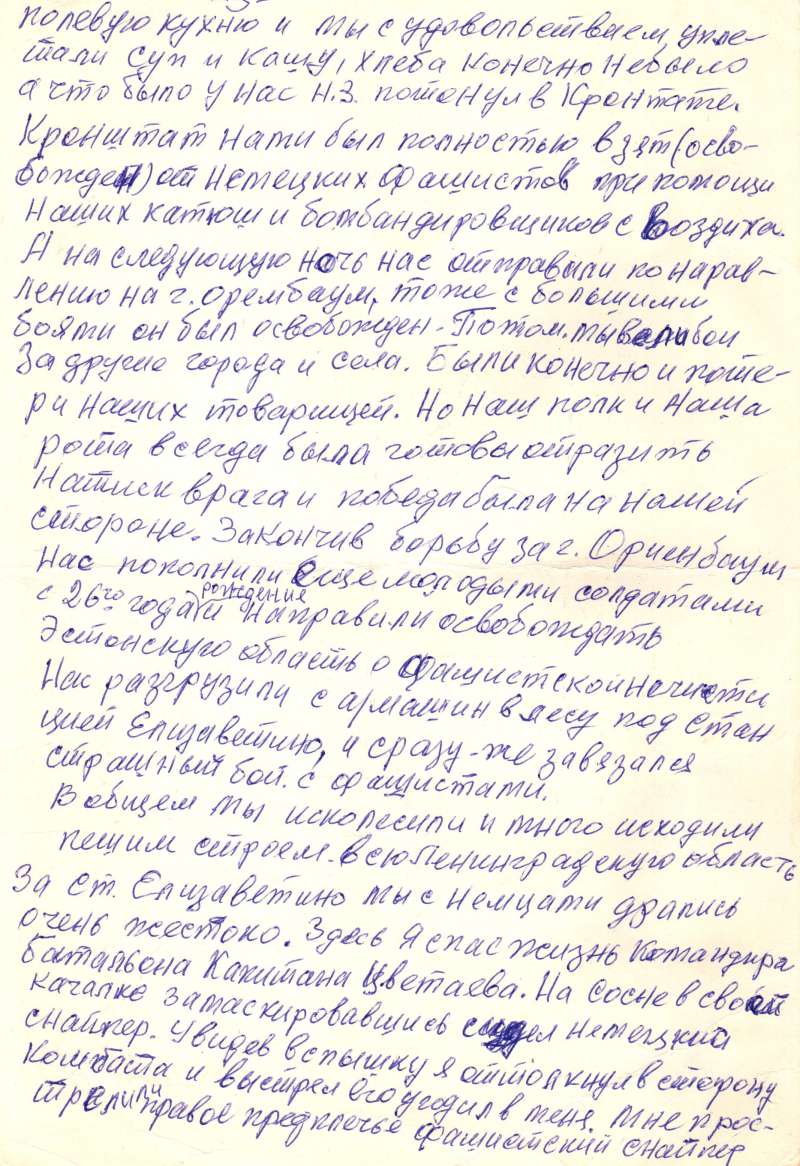 полевую кухню и мы с удовольствием упле-
тали суп и кашу, хлеба конечно небыло
а что было у нас Н.З. потонул в Кронтате.
Кронштат нами был полностью взят (осво-
божден) от немецких фашистов при помощи
наших катюш и бомбандировщиков с воздуха.
А на следующую ночь нас отправили по нарав-
лению на г. Орембаум, тоже с большими
боями он был освобожден. Потом мы вели бои
За другие города и села. Были конечно и поте-
ри наших товарищей. Но наш полк и наша
рота всегда была готовы отразить
Натиск врага и победа была на нашей
стороне. Закончив борьбу за г. Ориенбаум
Нас пополнили еще молодыми солдатами
с 26го года рождения и направили освобождать
Эстонскую область о фашистской нечисти
Нас разгрузили с армашин в лесу под стан
цией Елизаветино, и сразу-же завязался
страшный бой с фашистами.
Вобщем мы исколесили и много исходили
пешим строем всю Ленинградскую область
За ст. Елизаветино мы с немцами дрались
очень жестоко. Здесь я спас жизнь командира
батальона Капитана Цветаева. На сосне в своей
качалке замаскировавшись сидел немецкий
снайпер. Увидев вспышку я оттолкнул в сторону
комбата и выстрел его угодил в меня. Мне прос-
трелили правое предплечье фашистский снайпер